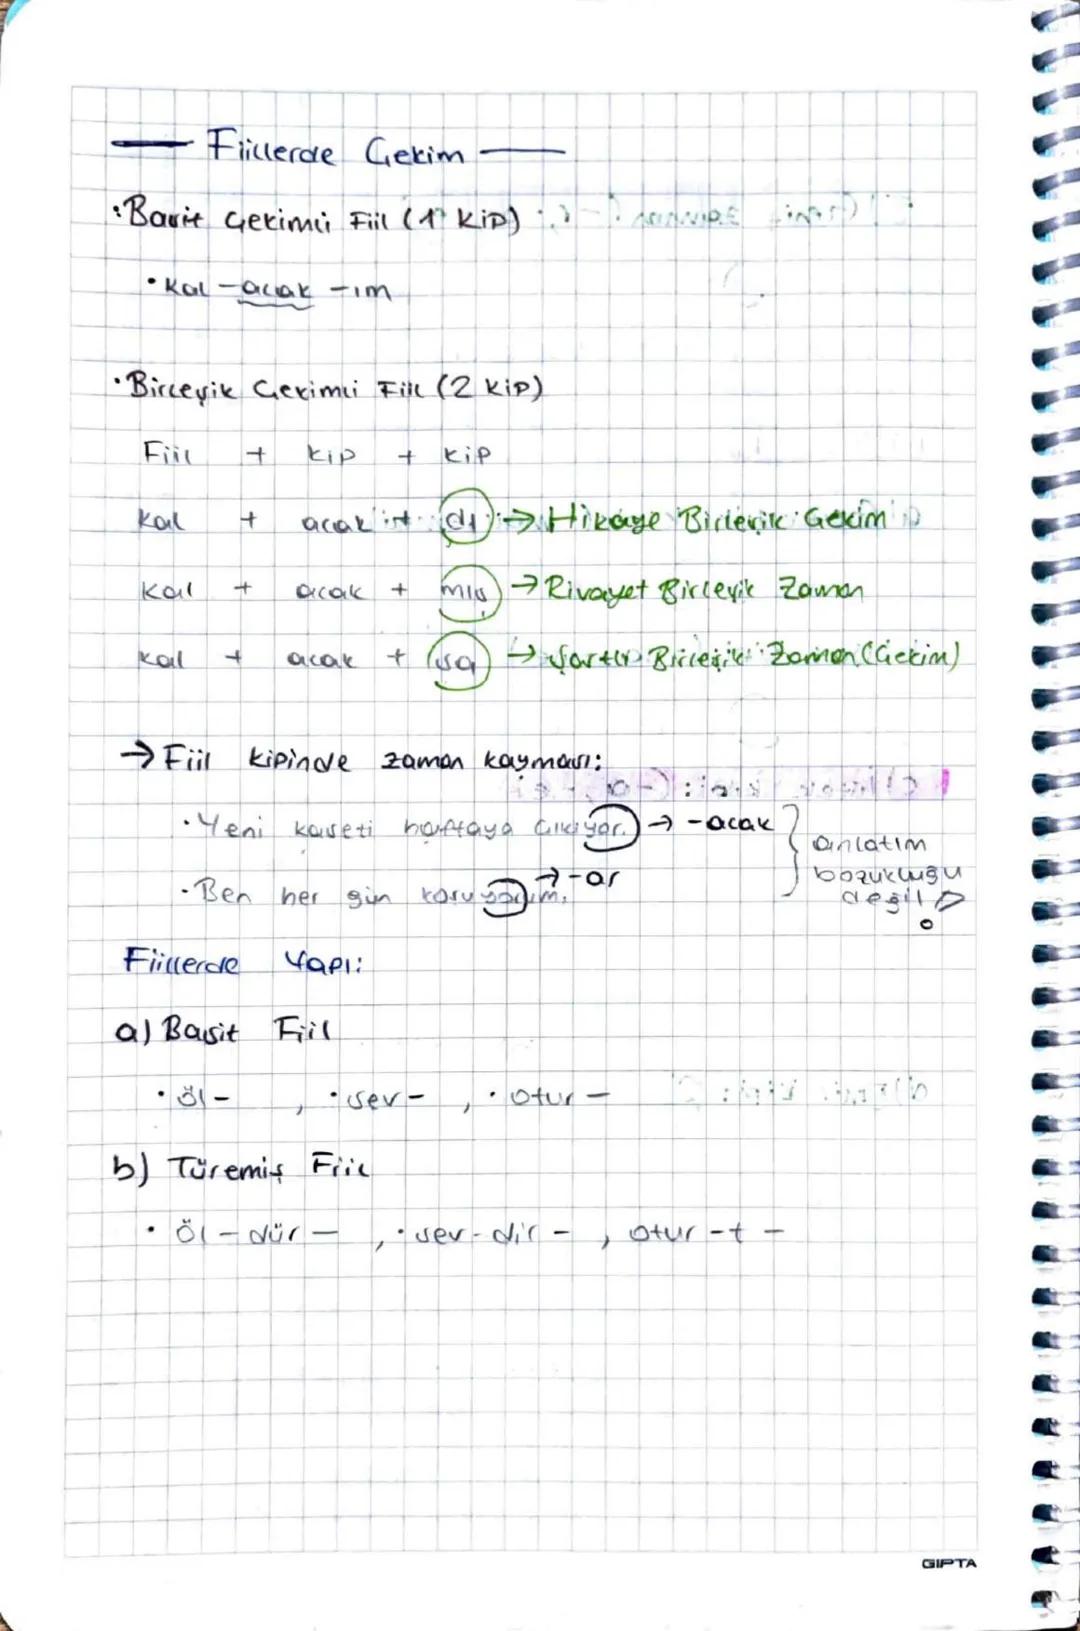 Fiillerde Çekim
• Basit Çekimli Fiil (1 Kip)
• Kal -acak -ım
• Birleşik Çekimli Fiil (2 Kip)
Fiil + kip + kip
Kal + acak + dı → Hikaye Birleşik Çekim
Kal + acak + mış → Rivayet Birleşik Zaman
Kal + acak + sa → Şartlı Birleşik Zaman (Çekim)
→ Fiil kipinde zaman kayması:
• Yeni kaseti haftaya çıkıyor. → -acak
• Ben her gün koşuyorum. → -ar
anlatım
bozukluğu
değil!
Fiillerde Yapı:
a) Basit Fiil
• öl- , • sev- , • otur-
b) Türemiş Fiil
• öl-dür- , • sev-dir- , otur-t-
GIPTA